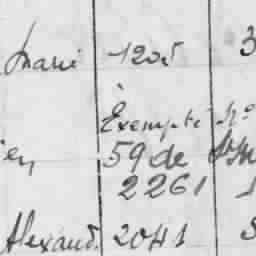 Marie 1205 3
Exempté No
en 59 de St M
2261 1
Alexand. 2041 S